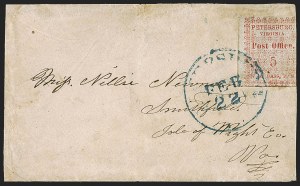 PETERSBURG
VIRGINIA
Post Office
5
FEB
22
Miss Nellie
Smithfield
Isle of Wight Co
Va